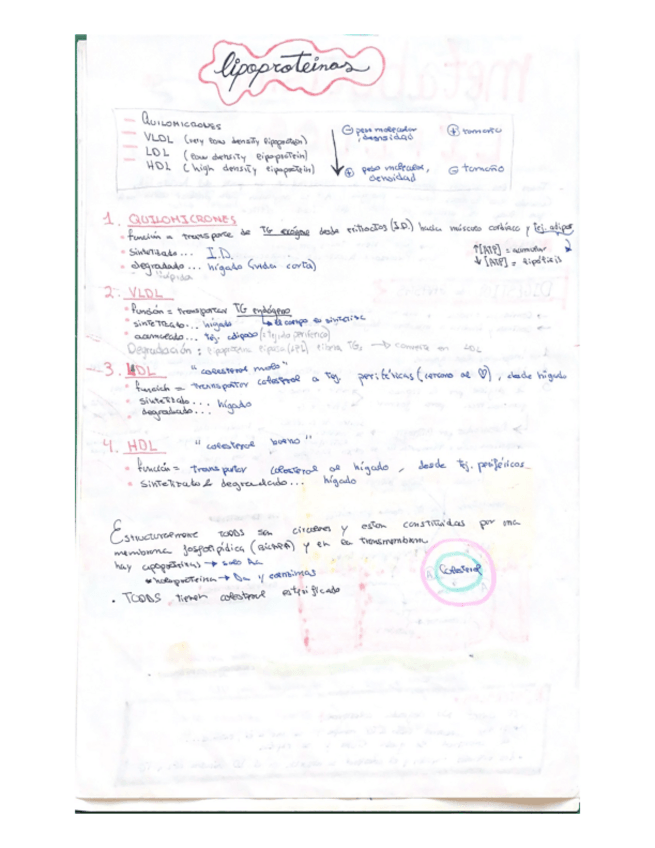 lipoproteinas
— QUILOMICRONES
— VLDL (very low density lipoprotein)
— LDL (low density lipoprotein)
HDL (high density lipoprotein)
⊖ peso molecular, densidad
⊕ tamaño
⊕ peso molecular, densidad
⊖ tamaño
1. QUILOMICRONES
• función = transporte de TG exógeno desde (I.D.) hacia músculo cardíaco y tej. adiposo
• sintetizado... I.D.
• degradado... hígado (vida corta)
rápida
↑[ATP] = acumular
↓[ATP] = lipólisis
2. VLDL
• función = transportar TG endógeno
• sintetizado... hígado ↳ el cuerpo lo sintetiza
• acumulado... tej. adiposo (o tejido periférico)
Degradación : lipoproteina lipasa (LPL) TG, → convierte en LDL
3. LDL "colesterol malo"
• función = transportar colesterol a tej. periféricos (cercano al ♡), desde hígado
• sintetizado... hígado
• degradado...
4. HDL "colesterol bueno"
• función = transportar colesterol al hígado, desde tej. periféricos
• sintetizado & degradado... hígado
Estructuralmente todos son circulares y están constituidas por una
membrana fosfolipídica (BICAPA) y en la transmembrana
hay apoproteinas → solo Aa
• holoproteina → Aa y coenzimas
• TODOS tienen colesterol esterificado
Colesterol